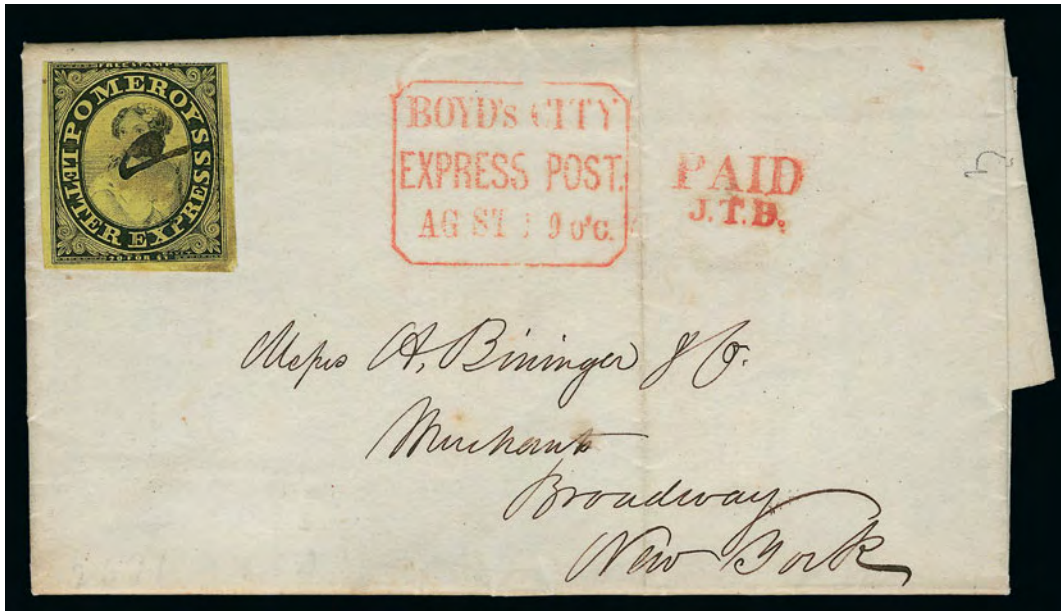 FREE STAMP
POMEROY'S LETTER EXPRESS
20 FOR $1
BOYD's CITY
EXPRESS POST.
AG ST 1 9 o'c.
PAID
J.T.B.
Messrs A. Bininger & Co.
Merchants
Broadway
New York